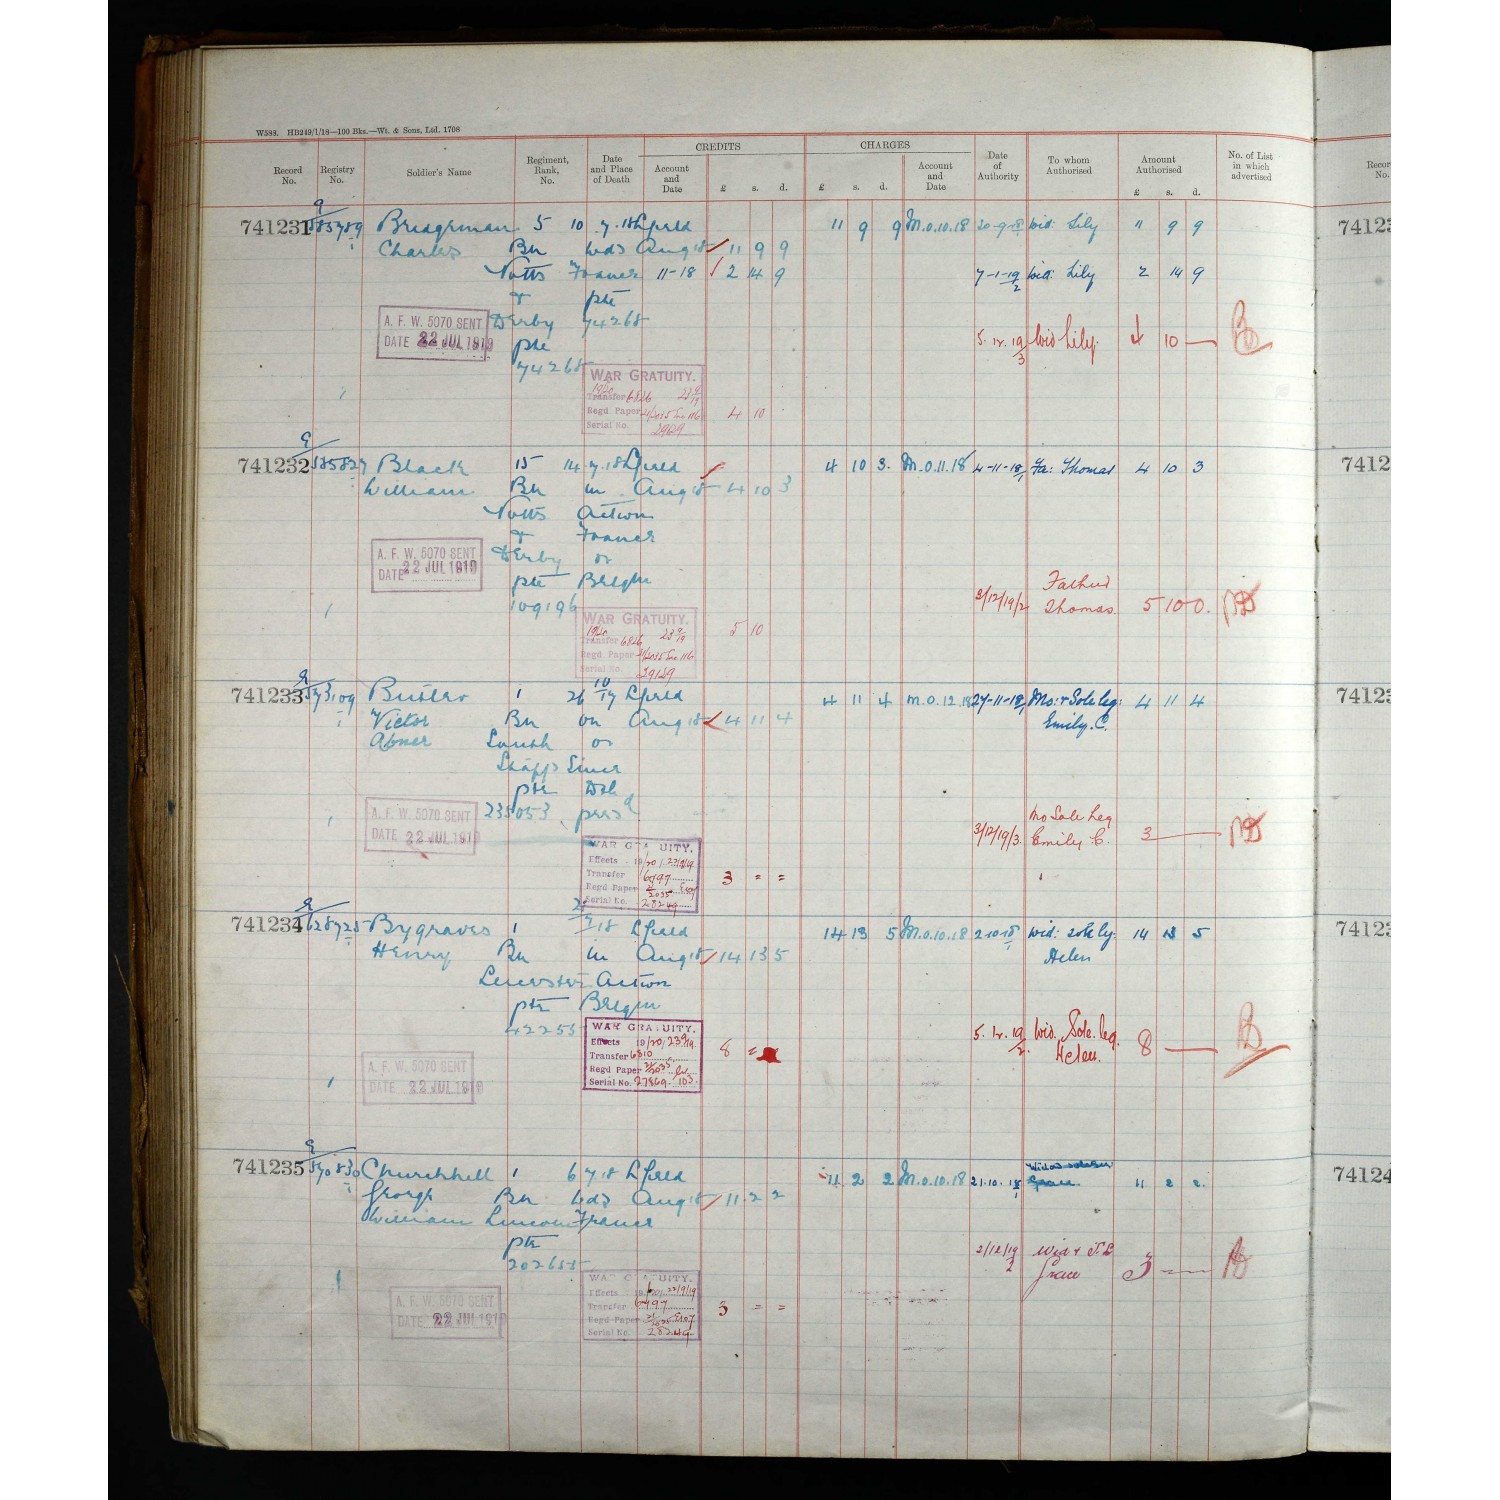 W583. HB249/1/18—100 Bks.—Wt. & Sons, Ltd. 1708
CREDITS CHARGES
Record No. Registry No. Soldier's Name Regiment, Rank, No. Date and Place of Death Account and Date £ s. d. £ s. d. Account and Date Date of Authority To whom Authorised Amount Authorised £ s. d. No. of List in which advertised
Record No.
741231 585789 Bridgman 5 10.7.18 Lfield 11 9 9 M.O.10.18 20-9-18 Wid: Lily 11 9 9
Charles Bn Wds Aug 18 11 9 9
Notts France 11-18 2 14 9 7-1-19/2 Wid: Lily 2 14 9
& pte
A. F. W. 5070 SENT Derby 74268
DATE 22 JUL 1919 pte 5.12.19/3 Wid Lily. 4 10 —
74268
WAR GRATUITY.
19/20
Transfer 6826 23/9/19
Regd. Paper 4 10
Serial No. 2929
741232 585827 Black 15 14.7.18 Lfield 4 10 3. M.O.11.18 4-11-18/1 Fa: Thomas 4 10 3
William Bn in Aug 18 4 10 3
Notts Action
& France
A. F. W. 5070 SENT Derby or
DATE 22 JUL 1919 pte Belgm
109196 2/12/19/2 Father Thomas. 5 10 0.
WAR GRATUITY.
19/20
Transfer 6826 23/9/19 5 10
Regd. Paper
Serial No. 29129
741233 573109 Butler 1 26 10/17 Lfield 4 11 4 M.O.12.18 27-11-18/1 Mo: & Sole leg: 4 11 4
Victor Bn on Aug 18 4 11 4 Emily.C.
Abner South or
Staffs Since
pte Dth
A. F. W. 5070 SENT 235053 presd
DATE 22 JUL 1919 3/12/19/3. Mo Sole Leg Emily C. 3 —
WAR GRATUITY.
Effects 19/20 22/9/19
Transfer 6497 3 = =
Regd Paper
Serial No. 28249
741234 628725 Bygraves 1 18 Lfield 14 13 5 M.O.10.18 2.10.18/1 Wid: sole lg: 14 13 5
Henry Bn in Aug 18 14 13 5 Helen
Leicester Action
pte Belgm
42255
WAR GRATUITY.
Effects 19/20 23/9/19 5.12.19/2. Wid. Sole. leg. Helen. 8 —
Transfer 6810 8 =
A. F. W. 5070 SENT Regd Paper
DATE 22 JUL 1919 Serial No. 27869. 103.
741235 570830 Churchhell 1 6 7.18 Lfield 4 2 2 M.O.10.18 21.10.18/1 4 2 2.
George Bn Wds Aug 18 11 2 2
William Lincoln France
pte 2/12/19/2 Wid & S.L Grace 3 — —
202655
WAR GRATUITY.
A. F. W. 5070 SENT Effects 22/9/19
DATE 22 JUL 1919 Transfer 6497 3 = =
Regd Paper
Serial No. 28249